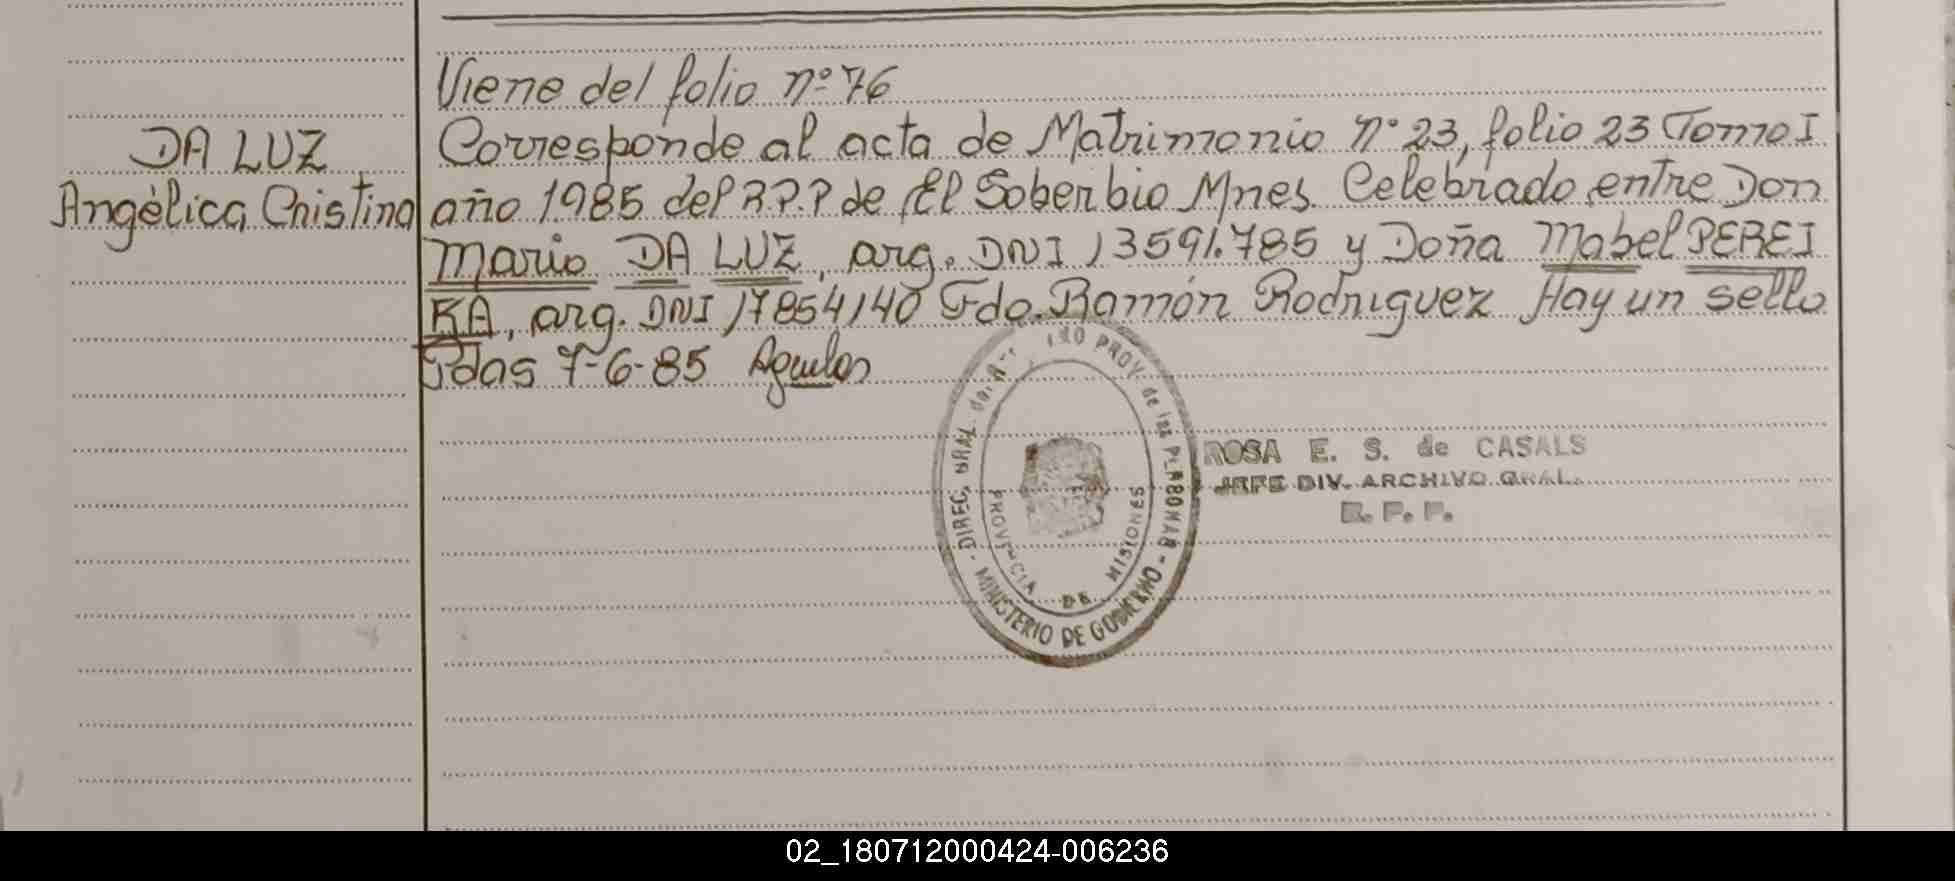 Viene del folio nº 76
DA LUZ
Angélica Cristina
Corresponde al acta de Matrimonio nº 23, folio 23 Tomo I
año 1985 del R.P.P de El Soberbio Mnes. Celebrado entre Don
Mario DA LUZ, arg. DNI 13591.785 y Doña Mabel PEREI
RA, arg. DNI 17854140 Fdo. Ramón Rodriguez Hay un sello
Pdas 7-6-85
DIREC. GRAL. PROV. de las PERSONAS - MINISTERIO DE GOBIERNO -
PROVINCIA DE MISIONES
ROSA E. S. de CASALS
JEFE DIV. ARCHIVO GRAL.
R. P. P.
02_180712000424-006236